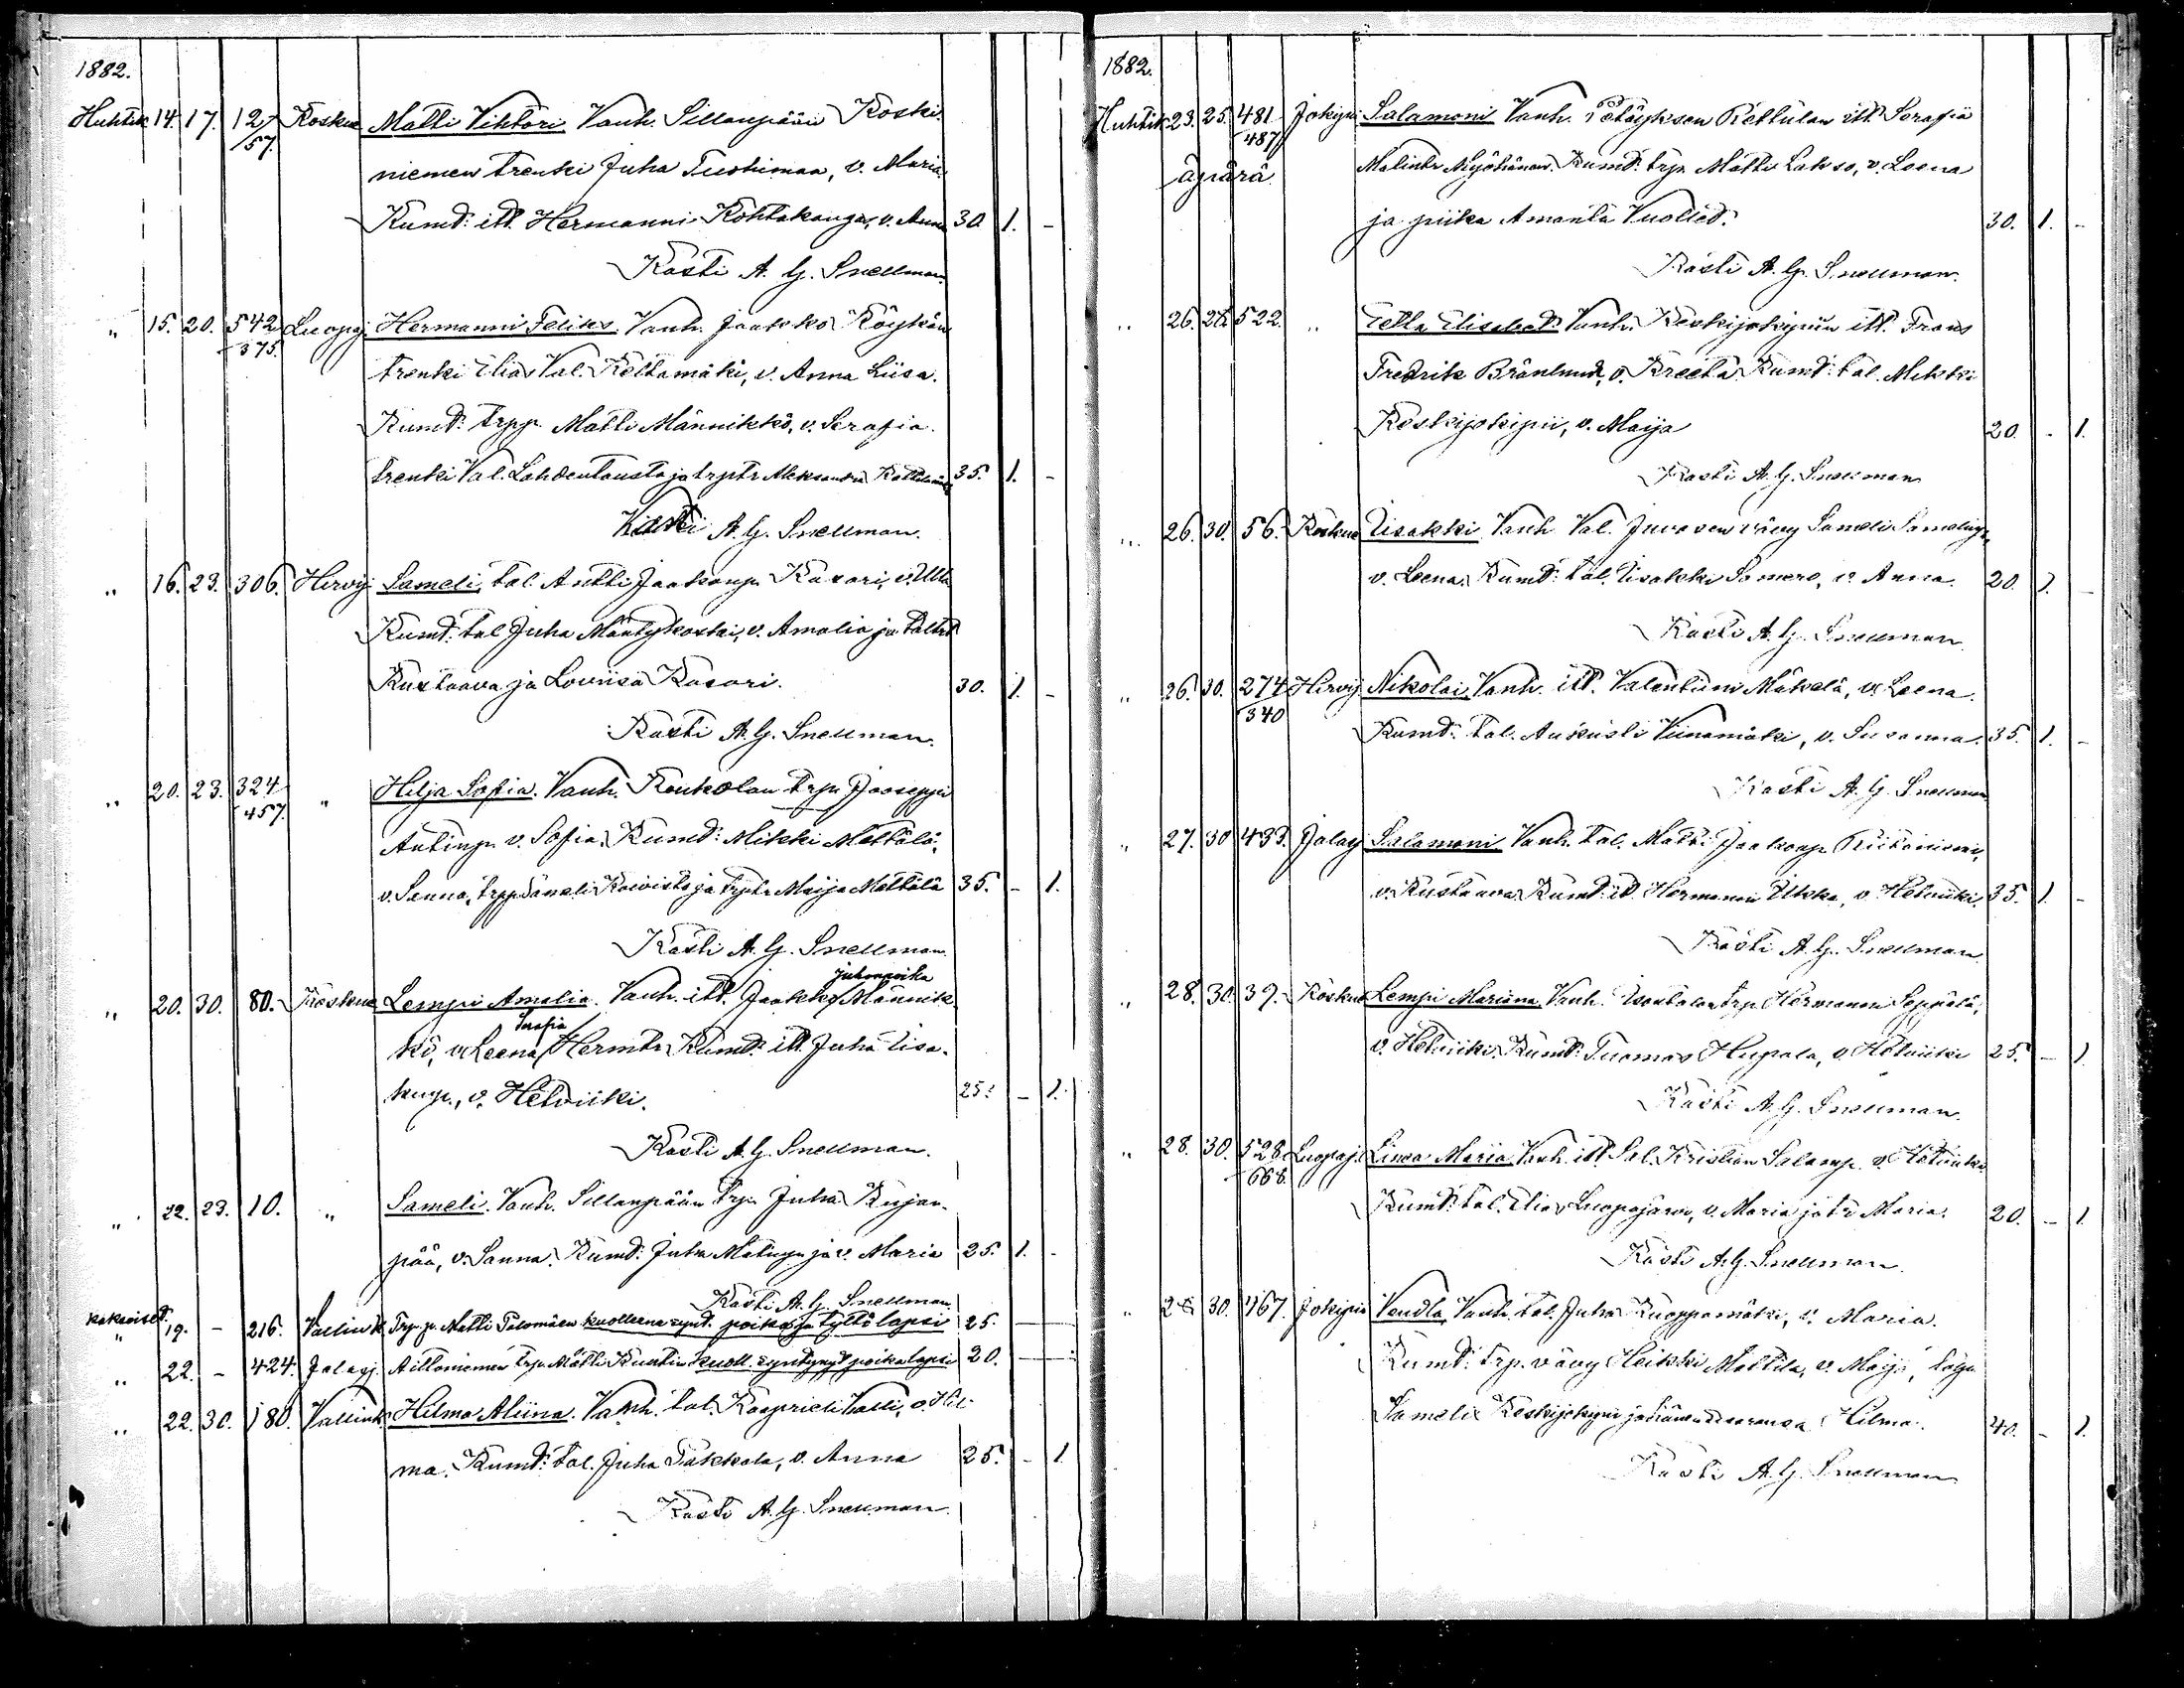 1882.
Huhtik 14. 17. 12/57. Koskue Matti Vihtori. Vanh. Sillanpään Koski-
niemen trenki Juha Tuohimaa, v. Maria.
Kumd: itl. Hermanni Kohtakangas, v. Anna 30. 1. -
Kasti A. G. Snellman.
" 15. 20. 542/375. Luopaj. Hermanni Feliks. Vanh. Jaakko Köykän
trenki Elias Val. Keltamäki, v. Anna Liisa.
Kumd: trpp. Matti Männikkö, v. Serafia.
trenki Val. Lahdentausta ja trptr Aleksandra 35. 1. -
Kasti A. G. Snellman.
" 16. 23. 306. Hirvij. Sameli, tal. Antti Jaakonp. Kasari, v. Ulla
Kumd: tal. Juha Mäntykoski, v. Amalia ja taltrt
Kustaava ja Loviisa Kasari. 30. 1. -
Kasti A. G. Snellman.
" 20. 23. 324/457. " Hilja Sofia. Vanh. Koukolan trp. Jooseppi
Antinp. v. Sofia. Kumd: Mikki Mettälä,
v. Sanna, trpp. Sameli Koivisto ja trptr Maija Mettälä 35. - 1.
Kasti A. G. Snellman.
Juhonpoika
" 20. 30. 80. Koskue Lempi Amalia. Vanh. itl. Jaakko Männik-
Serafia
kö, v. Leena Hermtr. Kumd: itl. Juha Iisa-
kinp., v. Hetviiki. 25. - 1.
Kasti A. G. Snellman.
" 22. 23. 10. " Sameli. Vanh. Sillanpään trp. Juha Kujan-
pää, v. Sanna. Kumd: Juha Matinp. ja v. Maria 25. 1. -
Kasti A. G. Snellman.
kakoiset
" 19. - 216. Vallink. Trp. p. Matti Palomäen kuolleena synt. poika ja tyttölapsi 25.
" 22. - 424. Jalasj. Aittoniemen trp. Matti Kustin kuoll. syntynyt poikalapsi 20.
" 22. 30. 180. Vallink. Hilma Aliina. Vanh. tal. Kaaprieli Valli, v. Hil-
ma. Kumd: tal. Juha Pakkala, v. Anna 25. - 1.
Kasti A. G. Snellman.
1882.
Huhtik 23. 25. 481/487 Jokipii Salamoni. Vanh. itll. Serafia
äpärä Matintr. Kumd: trp. Matti Lakso, v. Leena
ja piika Amanta Vuolled. 30. 1. -
Kasti A. G. Snellman.
" 26. 522. " Vanh. Keskijokipiin itl. Frans
Fredrik Brånlund, v. Kreeta. Kumd: tal. Mikki
Keskijokipii, v. Maija 20. - 1.
Kasti A. G. Snellman
" 26. 30. 56. Koskue Iisakki. Vanh. Val. vävy Sameli Samelinp.,
v. Leena. Kumd: tal. Iisakki Somero, v. Anna. 20. 1. -
Kasti A. G. Snellman
" 26. 30. 274/340 Hirvij. Nikolai. Vanh. itl. Valentiini Mäkelä, v. Leena.
Kumd: tal. Aukusti Viinamäki, v. Susanna. 35. 1. -
Kasti A. G. Snellman
" 27. 30. 433. Jalasj Salamoni. Vanh. tal. Matti Jaakonp.
v. Kustaava. Kumd: itl. Hermanni Ilkka, v. Hetviiki. 35. 1. -
Kasti A. G. Snellman.
" 28. 30. 39. Koskue Lempi Mariana. Vanh. Isontalon trp. Hermanni Seppälä,
v. Hetviiki. Kumd: Tuomas Hupala, v. Hetviiki 25. - 1.
Kasti A. G. Snellman.
" 28. 30. 528/668. Luopaj. Liina Maria. Vanh. itl. Sal. Kristian Salamp. v. Hetviiki
Kumd: tal. Elias Luopajärvi, v. Maria ja tr. Maria. 20. - 1.
Kasti A. G. Snellman.
" 28. 30. 467. Jokipii Vendla. Vanh. tal. Juha Kuoppamäki, v. Maria.
Kumd: trp. vävy Heikki Mattila, v. Maija, talp.
Sameli Keskijokipii ja hänen sisarensa Hilma. 40. - 1.
Kasti A. G. Snellman